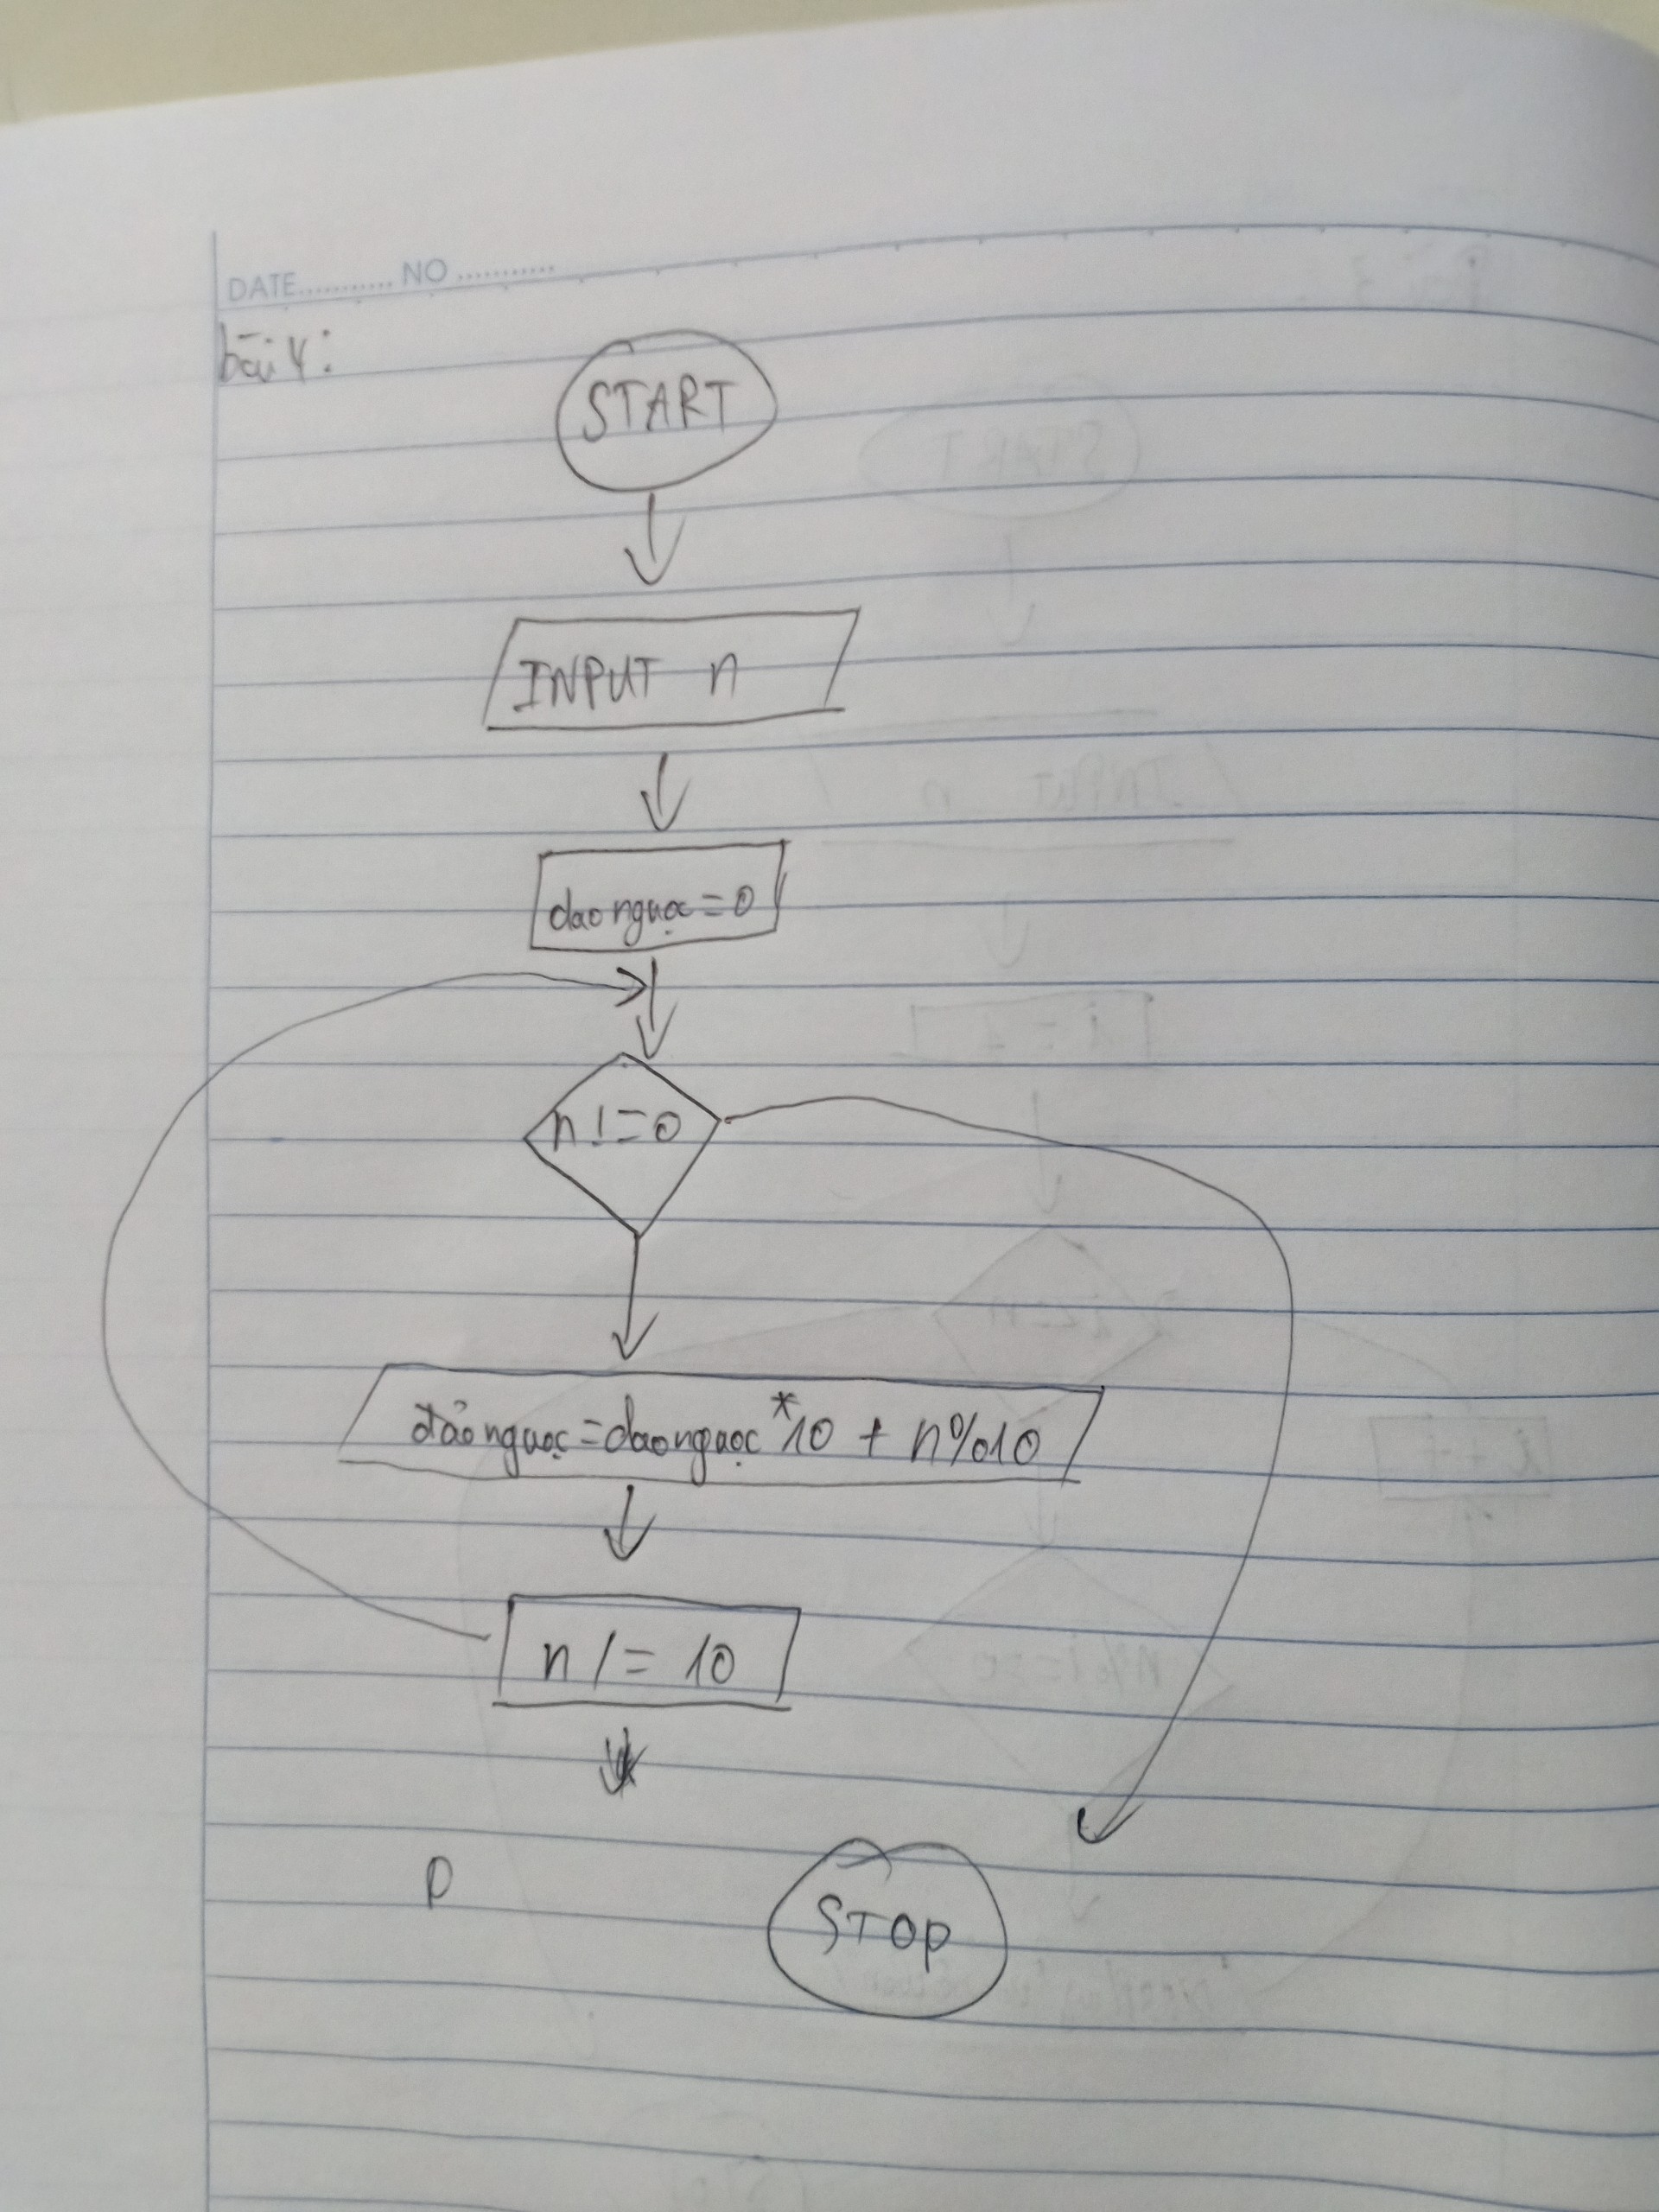 DATE........... NO ...........
bài 4:
START
INPUT n
daongược = 0
n != 0
đảo ngược = daongược * 10 + n%10
n /= 10
D
STOP